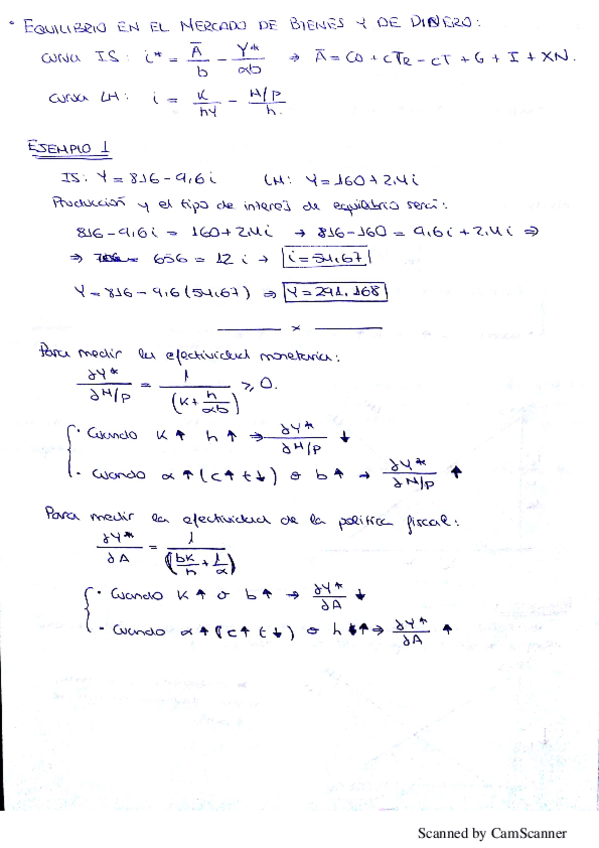 • EQUILIBRIO EN EL MERCADO DE BIENES Y DE DINERO:
curva IS: i* = Ā/b - Y*/αb → Ā = C0 + cTR - cT + G + I + XN.
curva LM: i = K/hY - M/P/h.
EJEMPLO 1
IS: Y = 816 - 9,6i LM: Y = 160 + 2,4i
Producción y el tipo de interés de equilibrio será:
816 - 9,6i = 160 + 2,4i → 816 - 160 = 9,6i + 2,4i ⇒
⇒ 656 = 12i → i = 54,67
Y = 816 - 9,6(54,67) ⇒ Y = 291,168
x
Para medir la efectividad monetaria:
∂Y*/∂M/P = 1/(K + h/αb) ≥ 0.
• Cuando K↑ h↑ ⇒ ∂Y*/∂M/P ↓
• Cuando α↑ (c↑ t↓) o b↑ → ∂Y*/∂M/P ↑
Para medir la efectividad de la política fiscal:
∂Y*/∂A = 1/(bK/h + 1/α)
• Cuando K↑ o b↑ → ∂Y*/∂A ↓
• Cuando α↑ (c↑ t↓) o h↑ ⇒ ∂Y*/∂A ↑
Scanned by CamScanner